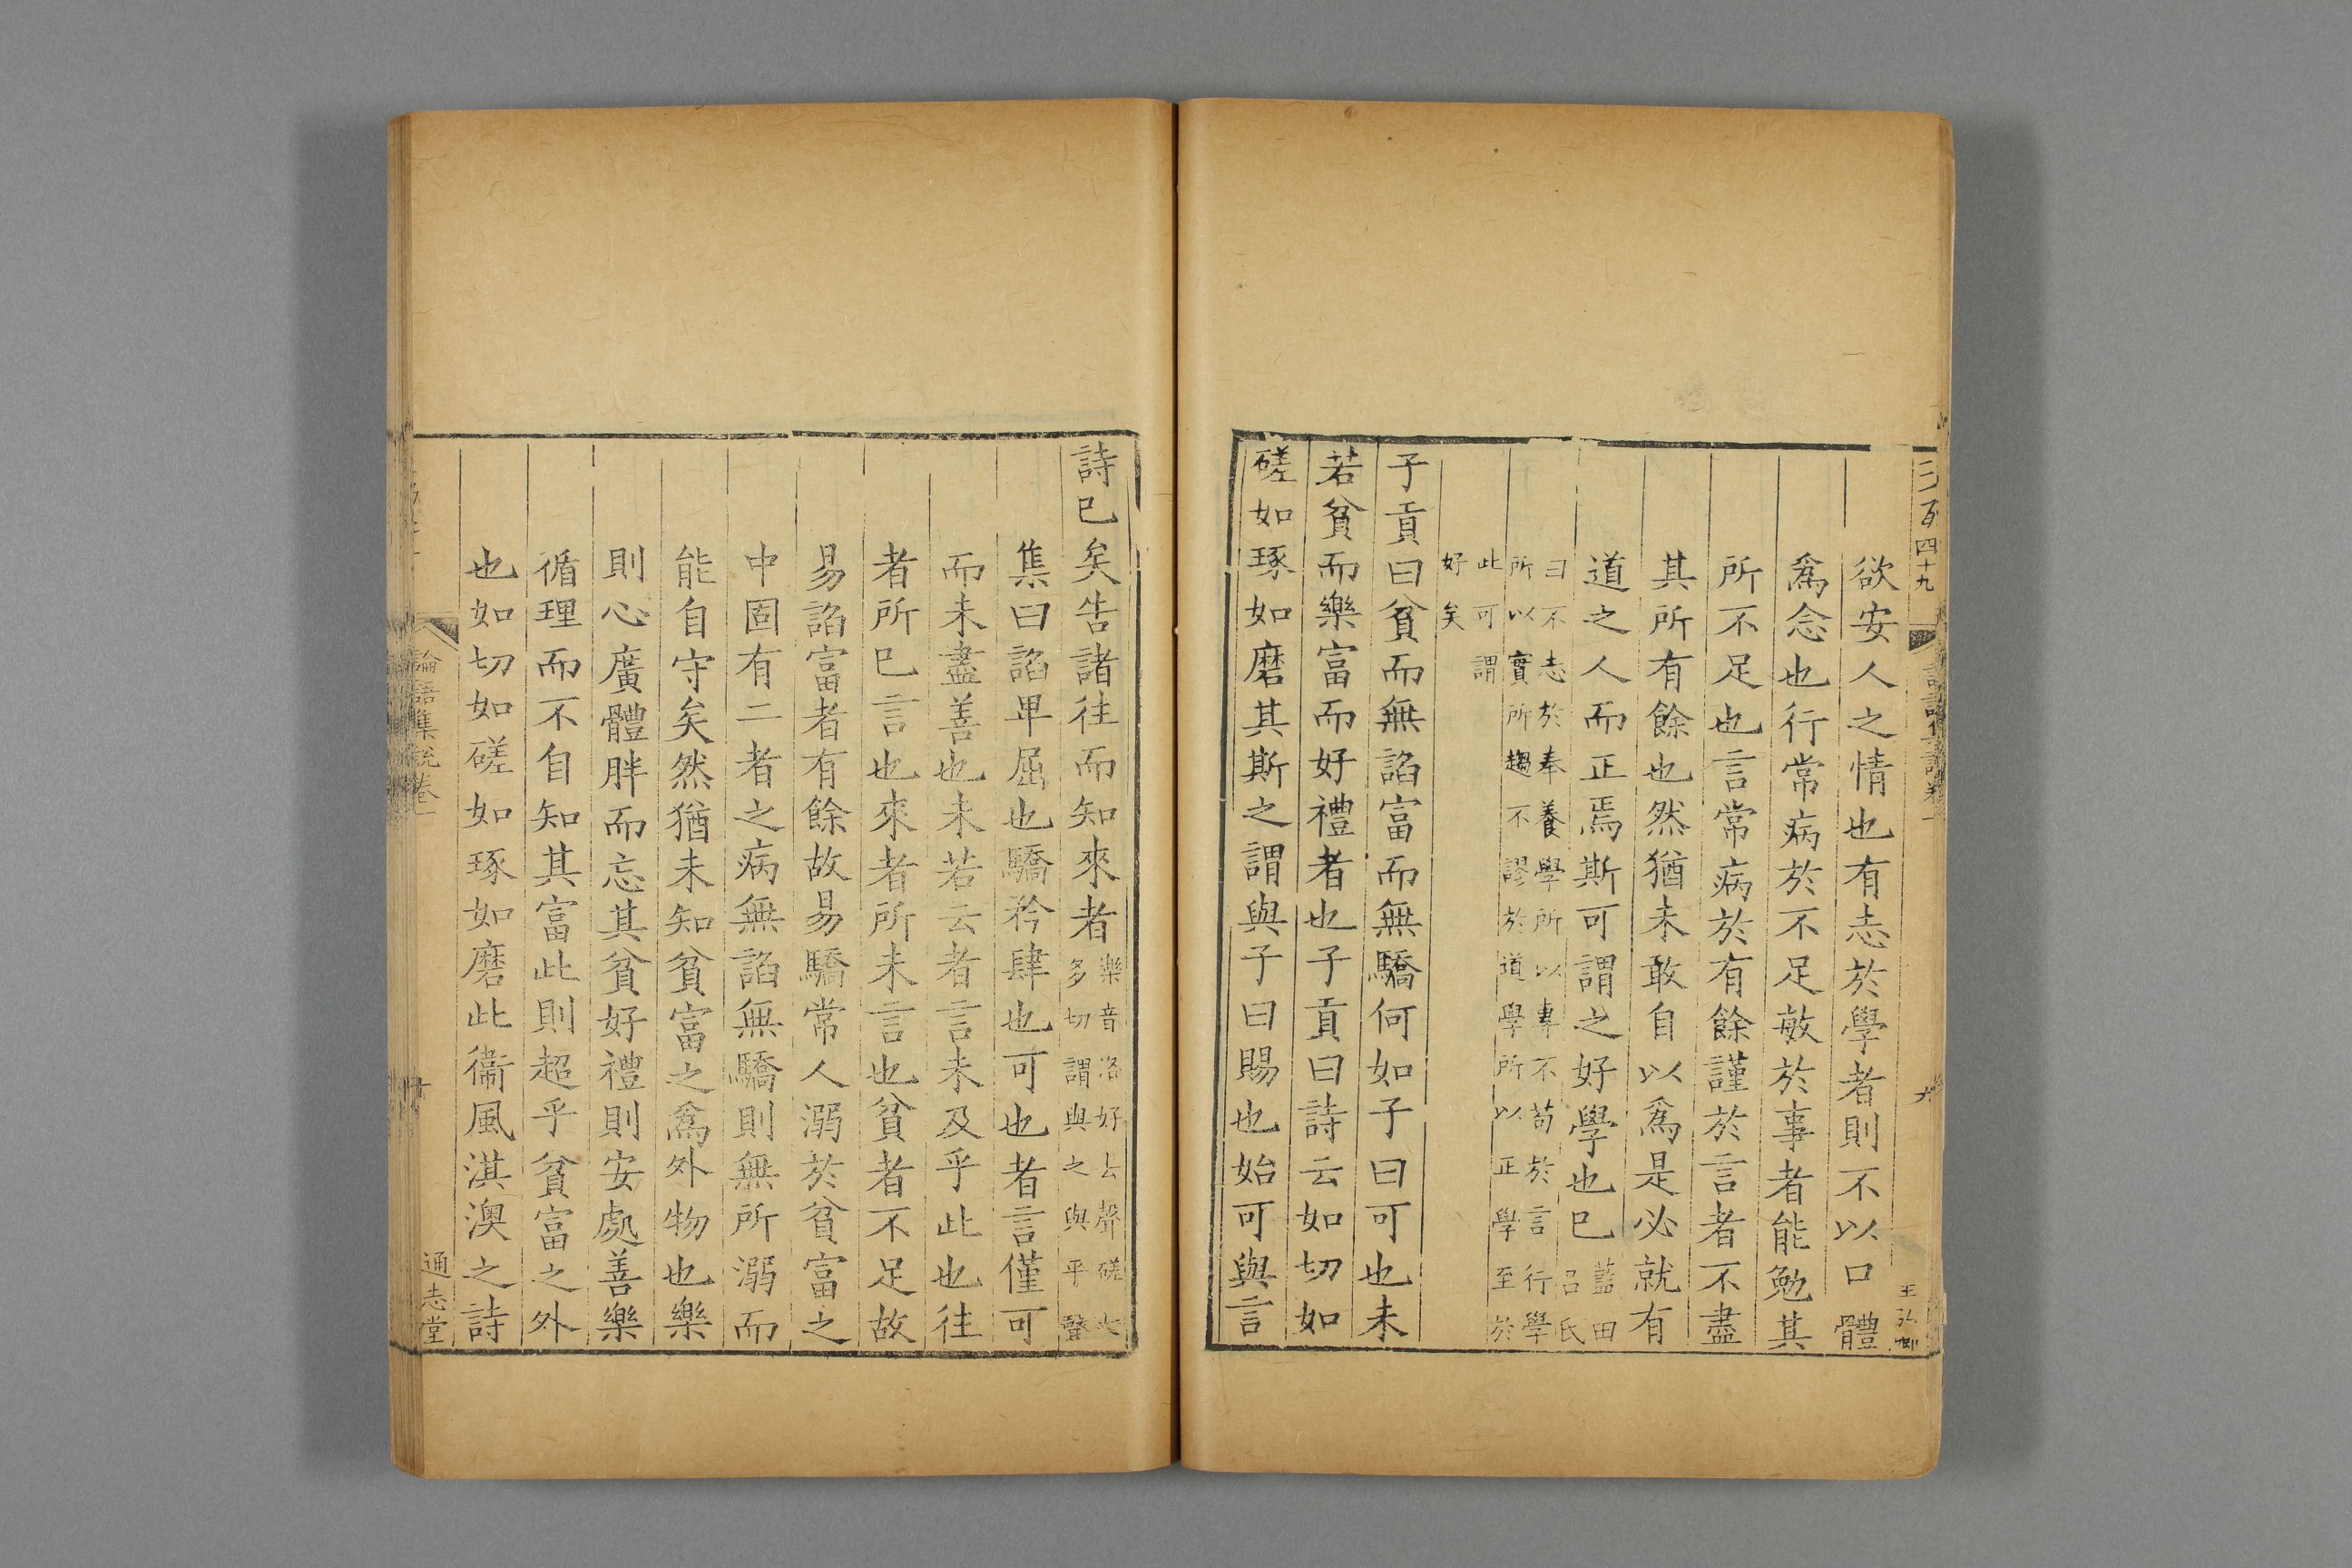 三百四十九
王
欲安人之情也有志於學者則不以口體
爲念也行常病於不足敏於事者能勉其
所不足也言常病於有餘謹於言者不盡
其所有餘也然猶未敢自以爲是必就有
道之人而正焉斯可謂之好學也已藍田呂氏
曰不志於奉養學所以專不苟於言行學
所以實所趨不謬於道學所以正學至於
此可謂
好矣
子貢曰貧而無諂富而無驕何如子曰可也未
若貧而樂富而好禮者也子貢曰詩云如切如
磋如琢如磨其斯之謂與子曰賜也始可與言
詩已矣告諸往而知來者樂音洛好去聲磋七
多切謂與之與平聲
集曰諂卑屈也驕矜肆也可也者言僅可
而未盡善也未若云者言未及乎此也往
者所已言也來者所未言也貧者不足故
易諂富者有餘故易驕常人溺於貧富之
中固有二者之病無諂無驕則無所溺而
能自守矣然猶未知貧富之爲外物也樂
則心廣體胖而忘其貧好禮則安處善樂
循理而不自知其富此則超乎貧富之外
也如切如磋如琢如磨此衞風淇澳之詩
論語集説卷一
十
通志堂